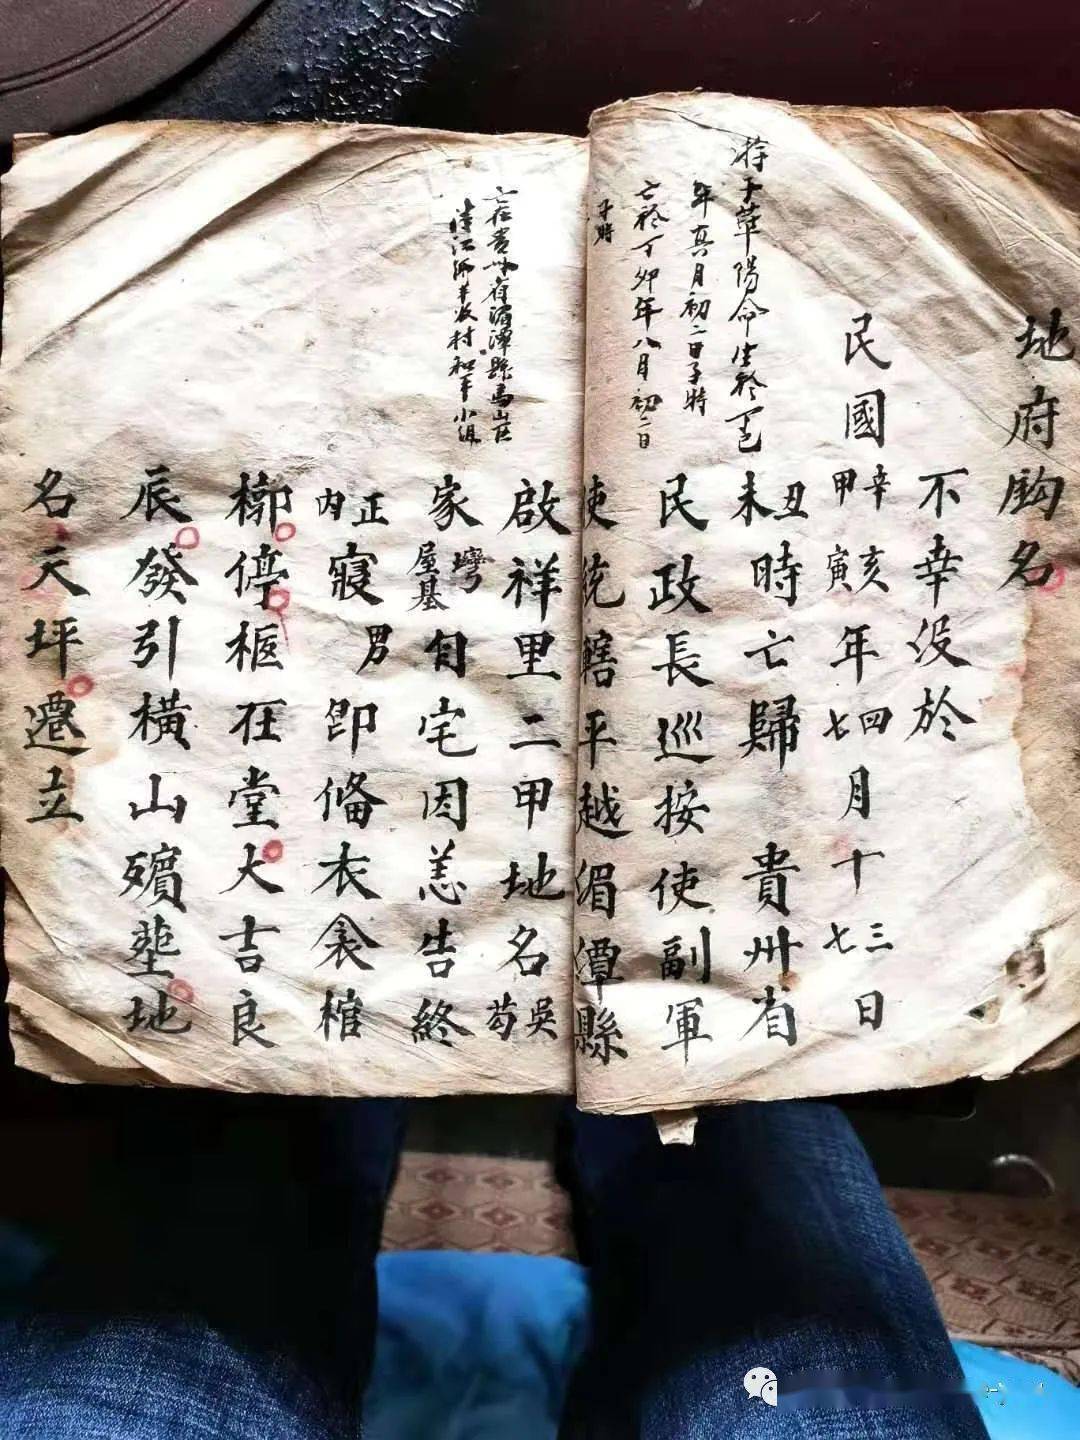 地府鈎名
不幸役於
民國辛亥甲寅年四七月十三七日
丑未時亡歸貴州省
民政長巡按使副軍
使統轄平越湄潭縣
啟祥里二甲地名吳苟
家灣屋基自宅因恙告終
正內寢男即俻衣衾棺
槨停柩在堂大吉良
辰發引橫山殯塟地
名天坪遷立
草陽命生於
年 月初二日子時
亡於丁卯年八月初二日
子時
亡在貴州省湄潭縣馬山区
村和平小组